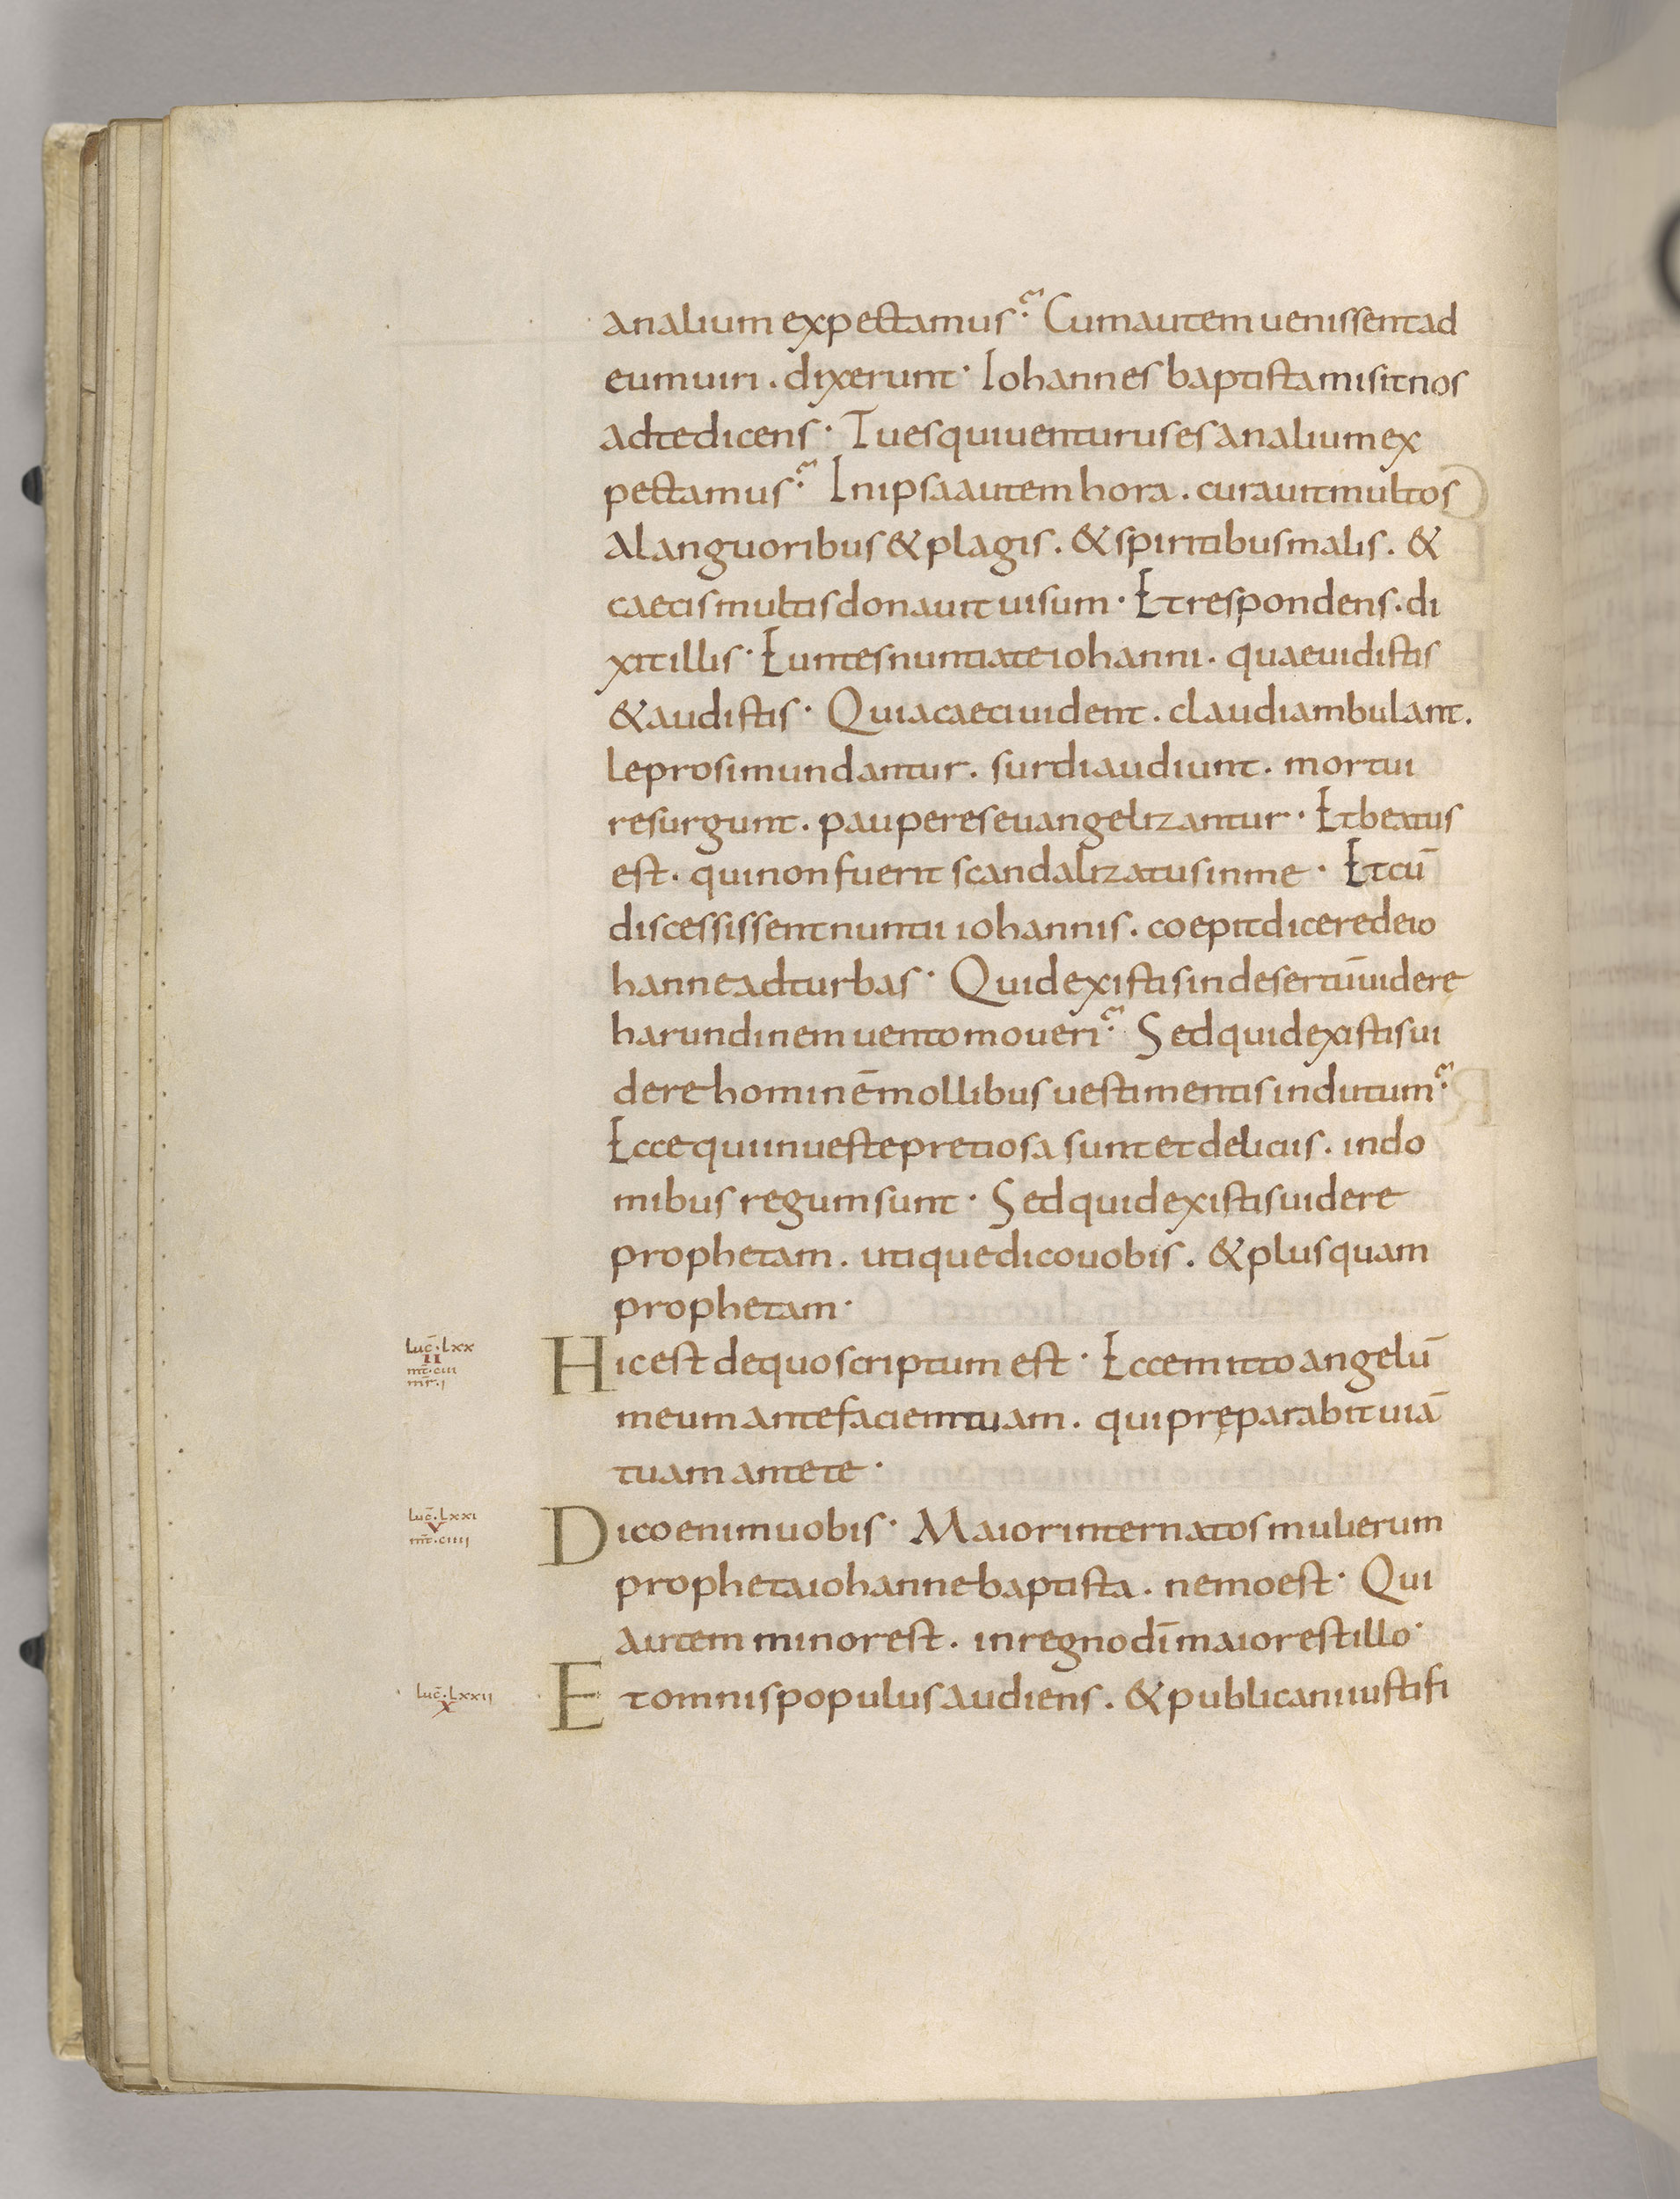 analium expectamus? Cum autem uenissent ad
eum uiri . dixerunt · Iohannes baptista misit nos
ad te dicens · Tu es qui uenturus es an alium ex
pectamus? In ipsa autem hora . curauit multos
a languoribus & plagis . & spiritibus malis . &
caecis multis donauit uisum · Et respondens . di
xit illis · Euntes nuntiate iohanni . quae uidistis
& audistis · Quia caeci uident . claudi ambulant .
leprosi mundantur . surdi audiunt . mortui
resurgunt . pauperes euangelizantur · Et beatus
est . qui non fuerit scandalizatus in me · Et cū
discessissent nuntii iohannis . coepit dicere de io
hanne ad turbas · Quid existis in desertū uidere
harundinem uento moueri? Sed quid existis ui
dere hominē mollibus uestimentis indutum?
Ecce qui in ueste pretiosa sunt et deliciis . in do
mibus regum sunt · Sed quid existis uidere
prophetam . utique dico uobis . & plus quam
prophetam ·
luc̄ . lxx
II
mt̄ . ciii
mr̄ . i
Hic est de quo scriptum est · Ecce mitto angelū
meum ante faciem tuam . qui pręparabit uiā
tuam ante te ·
luc̄ . lxxi
V
mt̄ . ciiii
Dico enim uobis · Maior inter natos mulierum
propheta iohanne baptista . nemo est · Qui
autem minor est . in regno dī maior est illo ·
luc̄ . lxxii
X
Et omnis populus audiens . & publicani iustifi